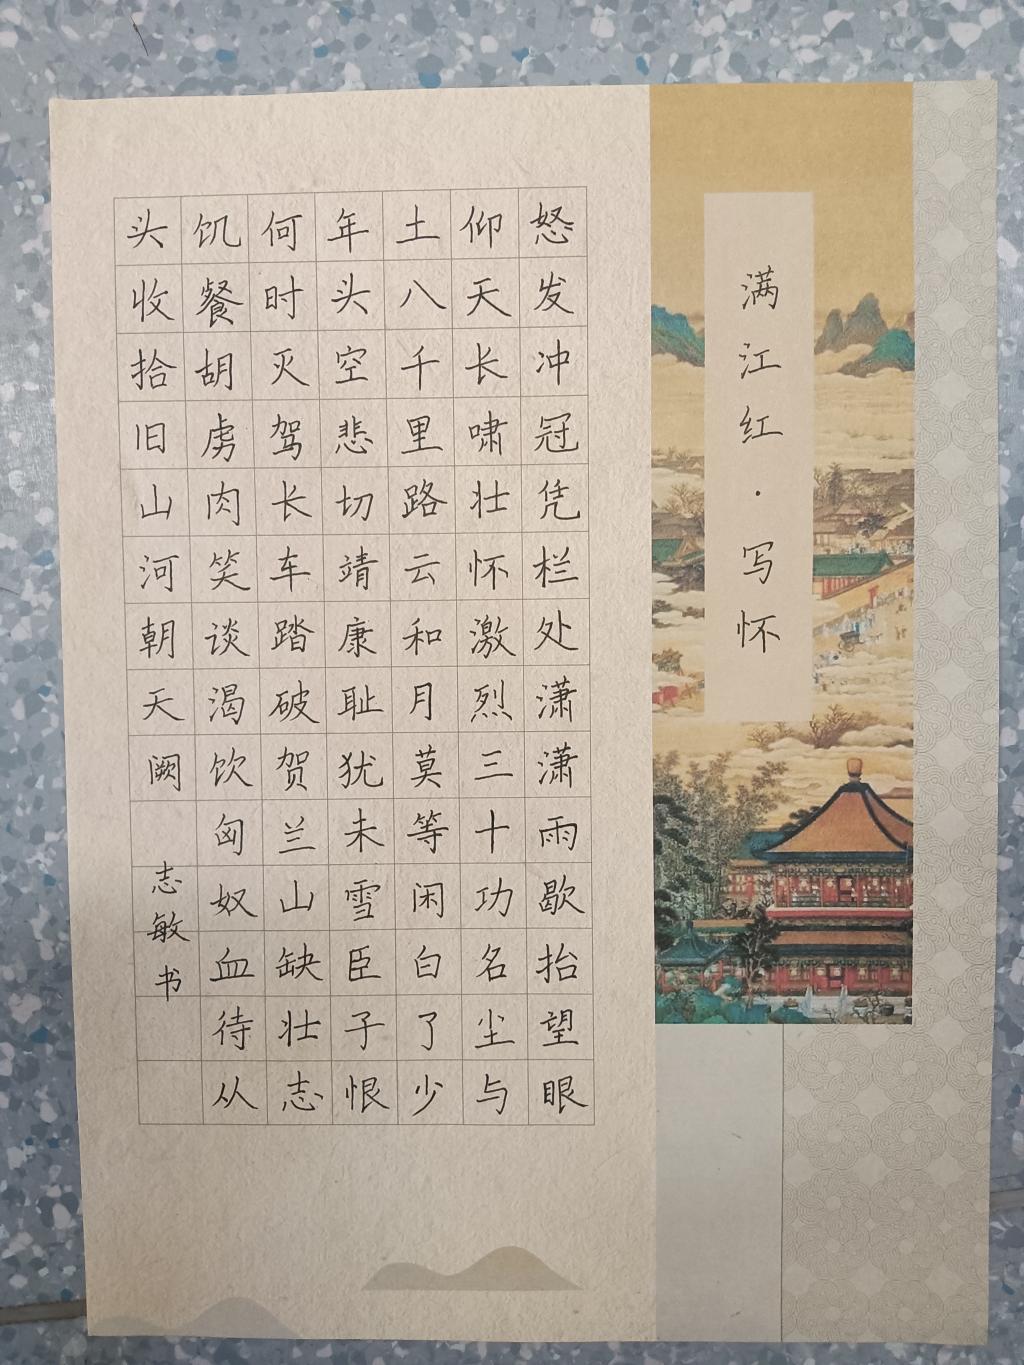 满江红·写怀
怒发冲冠凭栏处潇潇雨歇抬望眼
仰天长啸壮怀激烈三十功名尘与
土八千里路云和月莫等闲白了少
年头空悲切靖康耻犹未雪臣子恨
何时灭驾长车踏破贺兰山缺壮志
饥餐胡虏肉笑谈渴饮匈奴血待从
头收拾旧山河朝天阙
志敏书